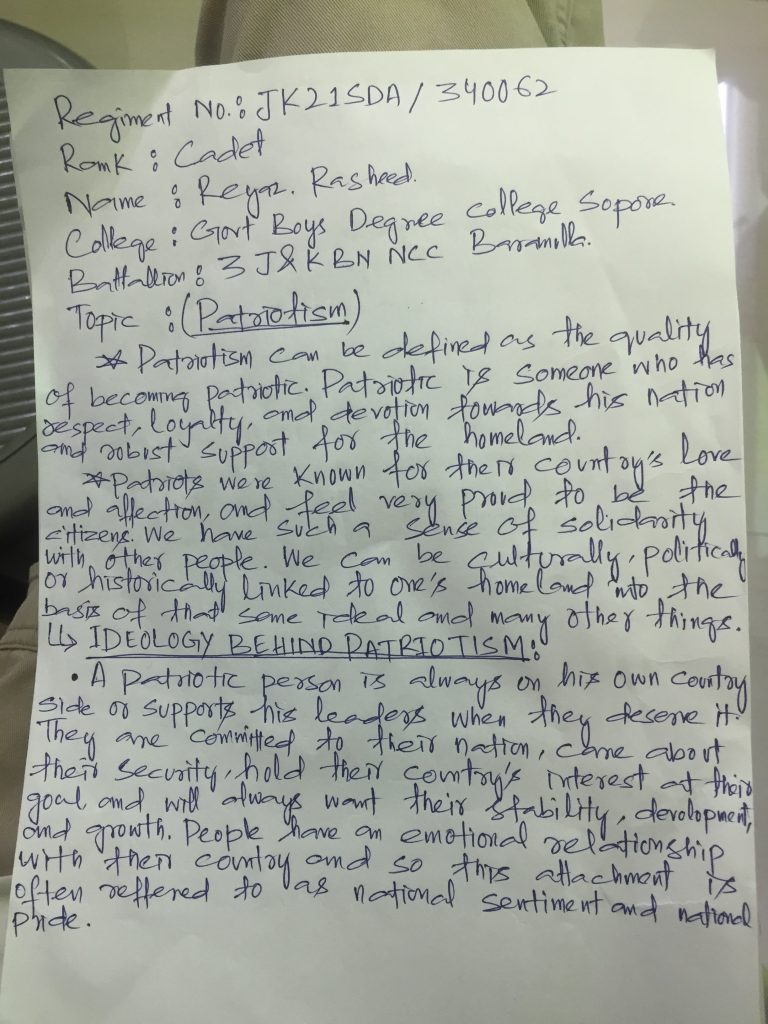 Regiment No.: JK21SDA/340062
Rank : Cadet
Name : Reyaz. Rasheed.
College : Govt Boys Degree college Sopore.
Battallion : 3 J&K BN NCC Baramulla.
Topic : (Patriotism)
* Patriotism can be defined as the quality
of becoming patriotic. Patriotic is someone who has
respect, loyalty, and devotion towards his nation
and robust support for the homeland.
* Patriots were known for their country's love
and affection, and feel very proud to be the
citizens. We have such a sense of solidarity
with other people. We can be culturally, politically
or historically linked to one's homeland into the
basis of that same ideal and many other things.
↳ IDEOLOGY BEHIND PATRIOTISM:
• A patriotic person is always on his own country
side or supports his leaders when they deserve it.
They are committed to their nation, care about
their security, hold their country's interest at their
goal and will always want their stability, devolopment,
and growth. People have an emotional relationship
with their country and so this attachment is
often reffered to as national sentiment and national
pride.